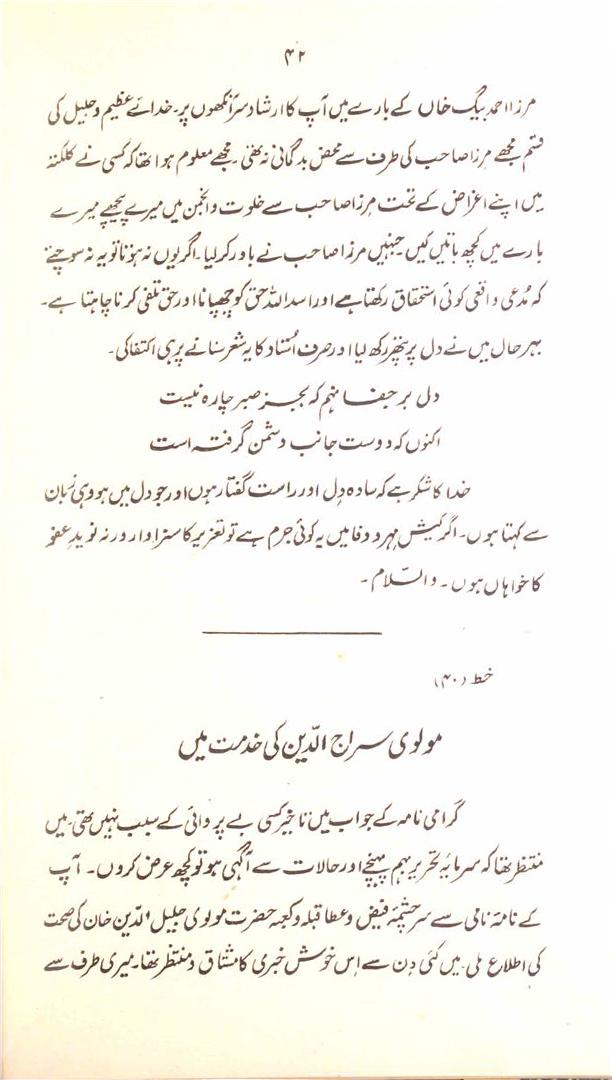 ۴۲
مرزا احمد بیگ خاں کے بارے میں آپ کا ارشاد سر آنکھوں پر۔ خدائے عظیم و جلیل کی
قسم مجھے مرزا صاحب کی طرف سے محض بدگمانی نہ تھی۔ مجھے معلوم ہوا تھا کہ کسی نے کلکتہ
میں اپنے اغراض کے تحت مرزا صاحب سے خلوت و انجمن میں میرے پیچھے میرے
بارے میں کچھ باتیں کیں جنہیں مرزا صاحب نے باور کر لیا۔ اگر یوں نہ ہوتا تو یہ نہ سوچتے
کہ مُدعی واقعی کوئی استحقاق رکھتا ہے اور اسد اللہ حق کو چھپانا اور حق تلفی کرنا چاہتا ہے۔
بہر حال میں نے دل پر پتھر رکھ لیا اور صرف اُستاد کا یہ شعر سنانے پر ہی اکتفا کی۔
دل بر جفا نہم کہ بجز صبر چارہ نیست
اکنوں کہ دوست جانب دشمن گرفتہ است
خدا کا شکر ہے کہ سادہ دِل اور راست گفتار ہوں اور جو دل میں ہو وہی زبان
سے کہتا ہوں۔ اگر کیش مہر و وفا میں یہ کوئی جرم ہے تو تعزیر کا سزاوار ورنہ نویدِ عفو
کا خواہاں ہوں۔ والسّلام۔
خط (۴۰)
مولوی سراج الدّین کی خدمت میں
گرامی نامہ کے جواب میں تاخیر کسی بے پروائی کے سبب نہیں تھی۔ میں
منتظر تھا کہ سرمایۂ تحریر بہم پہنچے اور حالات سے آگہی ہو تو کچھ عرض کروں۔ آپ
کے نامۂ نامی سے سرچشمۂ فیض و عطا قبلہ و کعبہ حضرت مولوی خلیل الدّین خان کی صحت
کی اطلاع ملی۔ میں کئی دِن سے اِس خوش خبری کا مشتاق و منتظر تھا۔ میری طرف سے